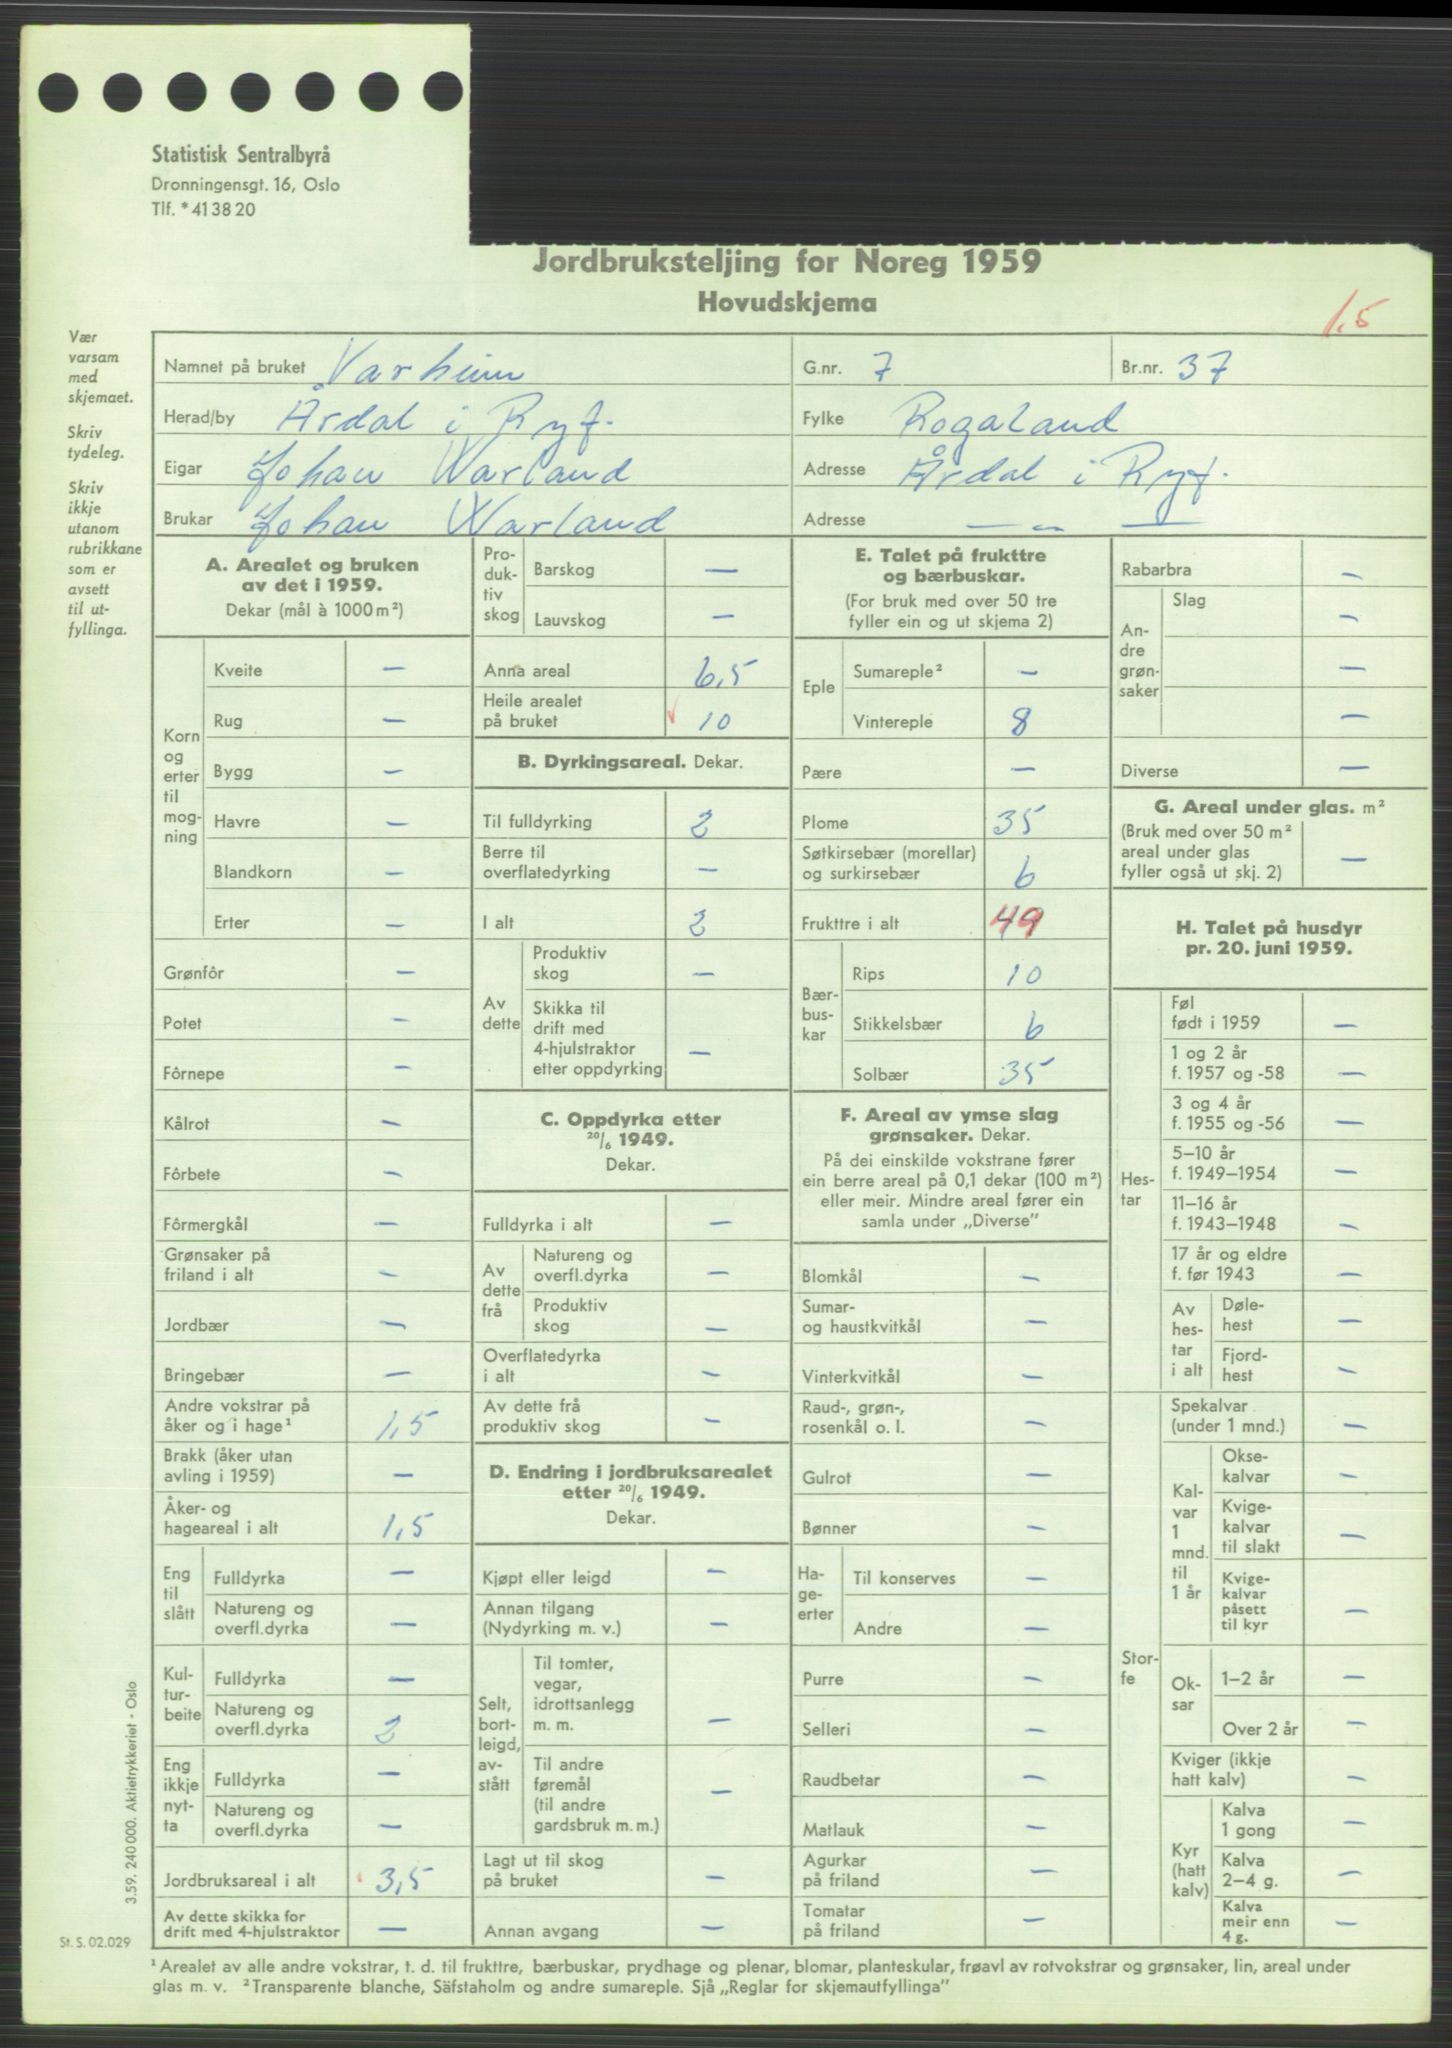 Statistisk Sentralbyrå
Dronningensgt. 16, Oslo
Tlf. * 41 38 20
Jordbruksteljing for Noreg 1959
Hovudskjema
1.5
Vær
varsam
med
skjemaet.
Skriv
tydeleg.
Skriv
ikkje
utanom
rubrikkane
som er
avsett
til ut-
fyllinga.
Namnet på bruket Varheim G.nr. 7 Br.nr. 37
Herad/by Årdal i Ryf. Fylke Rogaland
Eigar Johan Warland Adresse Årdal i Ryf.
Brukar Johan Warland Adresse — „ —
A. Arealet og bruken
av det i 1959.
Dekar (mål à 1000 m²)
Korn
og
erter
til
mog-
ning
Kveite —
Rug —
Bygg —
Havre —
Blandkorn —
Erter —
Grønfôr —
Potet —
Fôrnepe —
Kålrot —
Fôrbete —
Fôrmergkål —
Grønsaker på
friland i alt —
Jordbær —
Bringebær —
Andre vokstrar på
åker og i hage¹ 1,5
Brakk (åker utan
avling i 1959) —
Åker- og
hageareal i alt 1,5
Eng
til
slått
Fulldyrka —
Natureng og
overfl.dyrka —
Kul-
tur-
beite
Fulldyrka —
Natureng og
overfl.dyrka 2
Eng
ikkje
nyt-
ta
Fulldyrka —
Natureng og
overfl.dyrka —
Jordbruksareal i alt 3,5
Av dette skikka for
drift med 4-hjulstraktor —
Pro-
duk-
tiv
skog
Barskog —
Lauvskog —
Anna areal 6,5
Heile arealet
på bruket 10
B. Dyrkingsareal. Dekar.
Til fulldyrking 2
Berre til
overflatedyrking —
I alt 2
Av
dette
Produktiv
skog —
Skikka til
drift med
4-hjulstraktor
etter oppdyrking —
C. Oppdyrka etter
20/6 1949.
Dekar.
Fulldyrka i alt —
Av
dette
frå
Natureng og
overfl.dyrka —
Produktiv
skog —
Overflatedyrka
i alt —
Av dette frå
produktiv skog —
D. Endring i jordbruksarealet
etter 20/6 1949.
Dekar.
Kjøpt eller leigd —
Annan tilgang
(Nydyrking m. v.) —
Selt,
bort-
leigd,
av-
stått
Til tomter,
vegar,
idrottsanlegg
m. m. —
Til andre
føremål
(til andre
gardsbruk m. m.) —
Lagt ut til skog
på bruket —
Annan avgang —
E. Talet på frukttre
og bærbuskar.
(For bruk med over 50 tre
fyller ein og ut skjema 2)
Eple
Sumareple² —
Vintereple 8
Pære —
Plome 35
Søtkirsebær (morellar)
og surkirsebær 6
Frukttre i alt 49
Bær-
bus-
kar
Rips 10
Stikkelsbær 6
Solbær 35
F. Areal av ymse slag
grønsaker. Dekar.
På dei einskilde vokstrane fører
ein berre areal på 0,1 dekar (100 m²)
eller meir. Mindre areal fører ein
samla under „Diverse"
Blomkål —
Sumar-
og haustkvitkål —
Vinterkvitkål —
Raud-, grøn-,
rosenkål o. l. —
Gulrot —
Bønner —
Ha-
ge-
erter
Til konserves —
Andre —
Purre —
Selleri —
Raudbetar —
Matlauk —
Agurkar
på friland —
Tomatar
på friland —
Rabarbra —
An-
dre
grøn-
saker
Slag —
—
—
Diverse —
G. Areal under glas. m²
(Bruk med over 50 m²
areal under glas
fyller også ut skj. 2) —
H. Talet på husdyr
pr. 20. juni 1959.
Hes-
tar
Føl
født i 1959 —
1 og 2 år
f. 1957 og -58 —
3 og 4 år
f. 1955 og -56 —
5–10 år
f. 1949–1954 —
11–16 år
f. 1943–1948 —
17 år og eldre
f. før 1943 —
Av
hes-
tar
i alt
Døle-
hest —
Fjord-
hest —
Stor-
fe
Spekalvar
(under 1 mnd.) —
Kal-
var
1
mnd.
til
1 år
Okse-
kalvar —
Kvige-
kalvar
til slakt —
Kvige-
kalvar
påsett
til kyr —
Ok-
sar
1–2 år —
Over 2 år —
Kviger (ikkje
hatt kalv) —
Kyr
(hatt
kalv)
Kalva
1 gong —
Kalva
2–4 g. —
Kalva
meir enn
4 g. —
3.59. 240 000. Aktietrykkeriet - Oslo
St. S. 02.029
¹ Arealet av alle andre vokstrar, t. d. til frukttre, bærbuskar, prydhage og plenar, blomar, planteskular, frøavl av rotvokstrar og grønsaker, lin, areal under
glas m. v. ² Transparente blanche, Säfstaholm og andre sumareple. Sjå „Reglar for skjemautfyllinga"